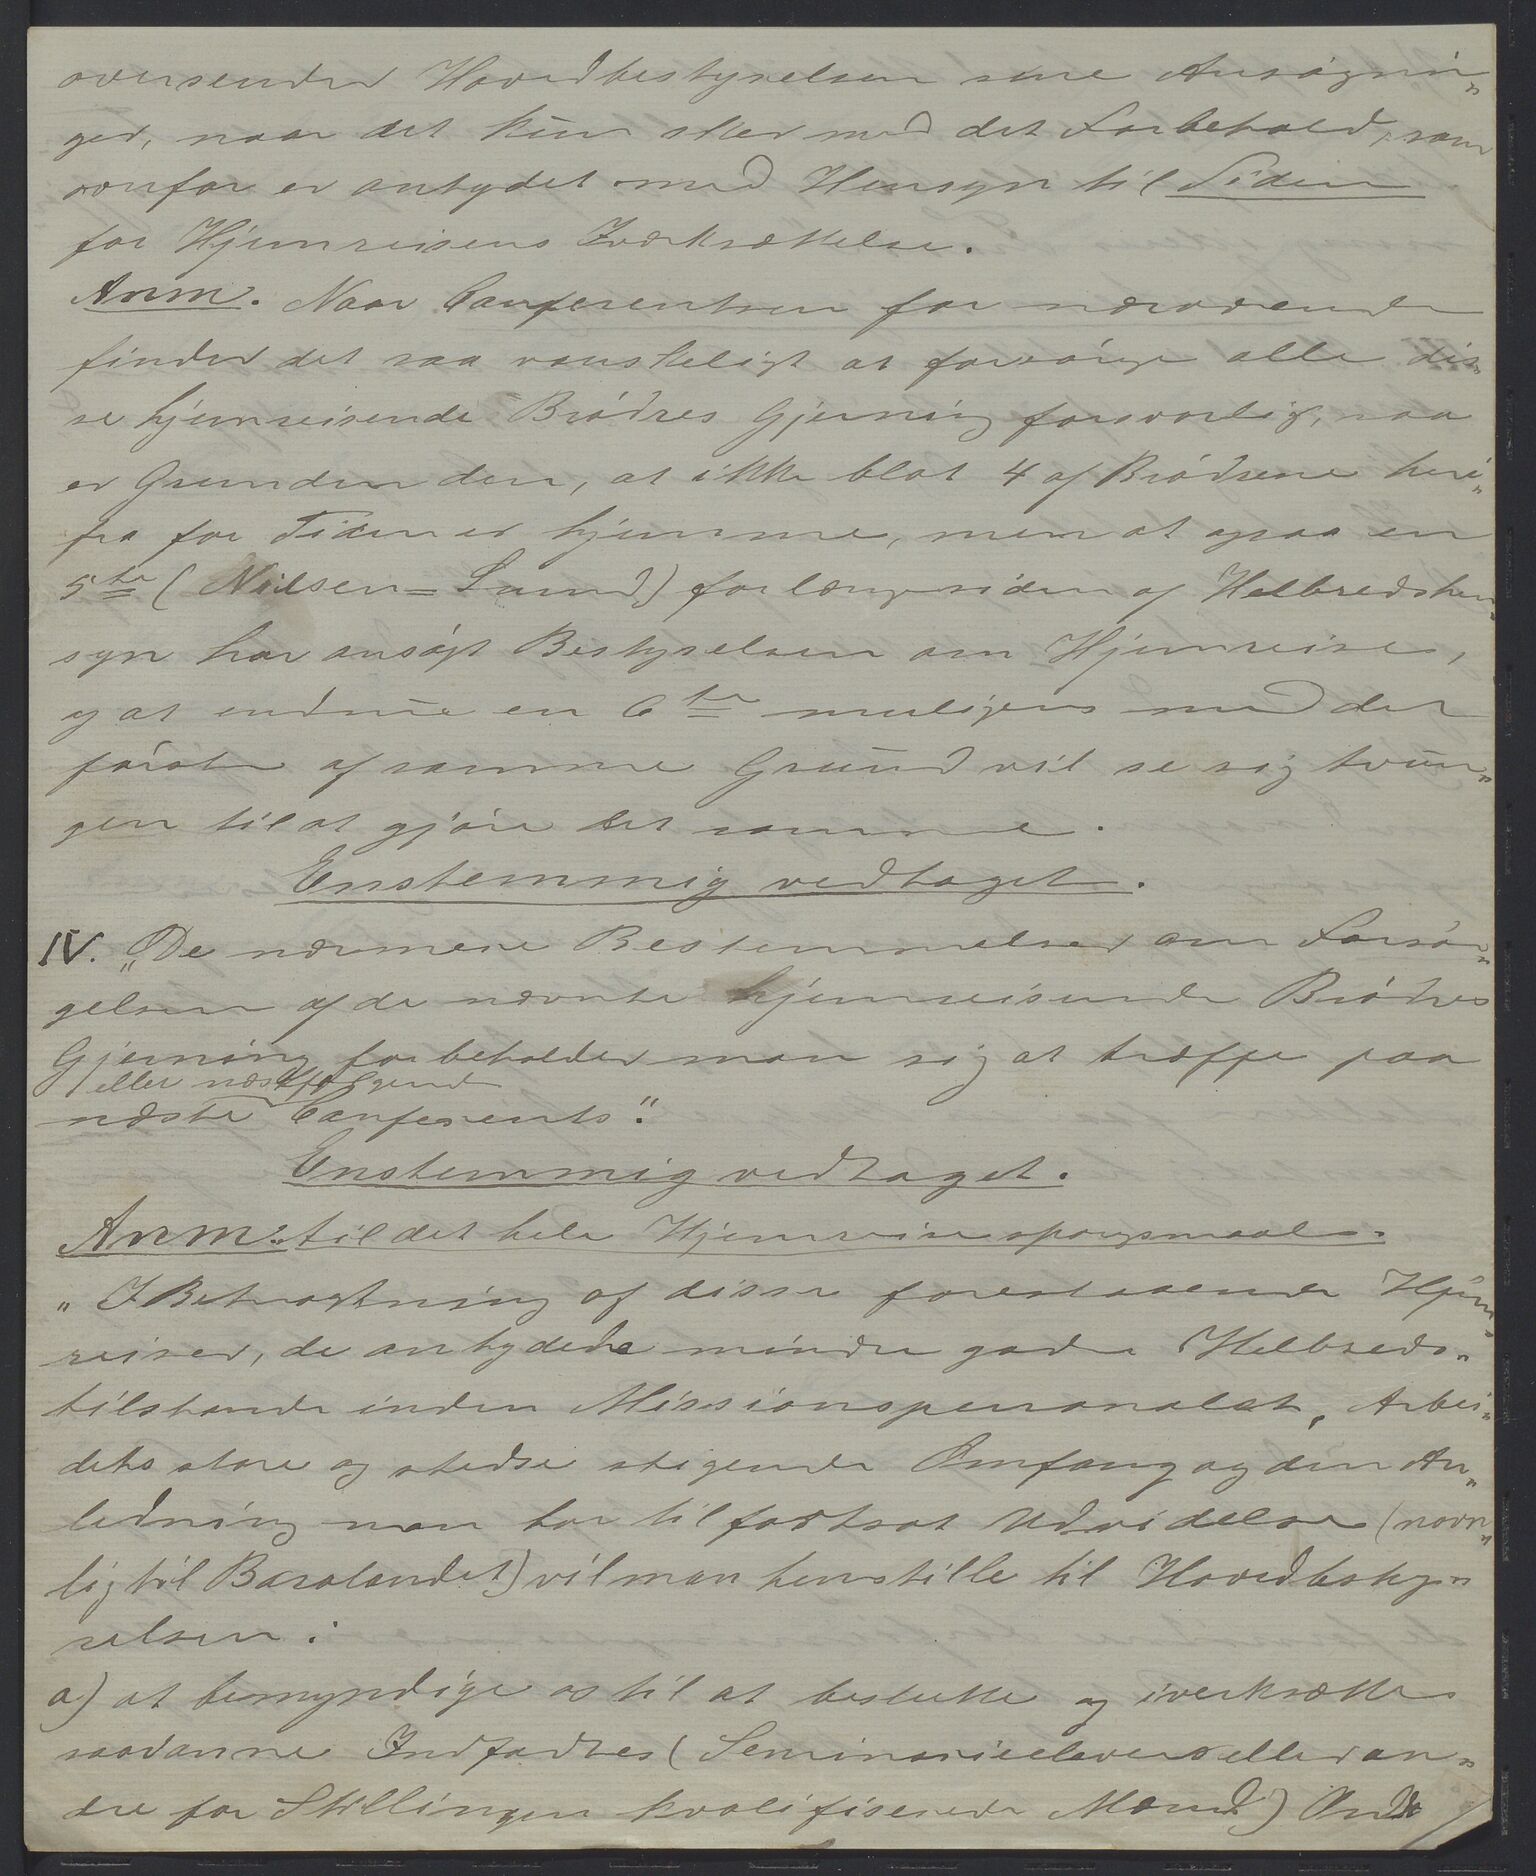 oversender Hovedbestyrelsen sine Ansøgnin„
ger, naar det kun sker med det Forbehold, som
ovenfor er antydet med Hensyn til Tiden
for Hjemreisens Iværksættelse.
Anm. Naar Conferentsen for nærværende
finder det saa vanskeligt at forsørge alle dis„
se hjemreisende Brødres Gjerning forsvarlig, saa
er Grunden den, at ikke blot 4 af Brødrene heri„
fra for Tiden er hjemme, men at ogsaa en
5te (Nielsen=Lund) for længesiden af Helbredshen„
syn har ansøgt Bestyrelsen om Hjemreise,
og at endnu en 6te muligens med det
første af samme Grund vil se sig tvun„
gen til at gjøre det samme.
Enstemmig vedtaget.
IV. „De nærmere Bestemmelser om Forsør„
gelsen af de nævnte hjemreisende Brødres
Gjerning forbeholder man sig at træffe paa
eller næstfølgende
næste Conferents“.
Enstemmig vedtaget.
Anm. til det hele Hjemreisespørgsmaal.
„I Betragtning af disse forestaaende Hjem„
reiser, de antydede mindre gode Helbreds„
tilstande inden Missionspersonalet, Arbei„
dets store og stedse stigende Omfang og den An„
ledning man har til fortsat Udvidelse (navn„
lig til Baralandet) vil man henstille til Hovedbesty„
relsen:
a) at bemyndige os til at beslutte og iverksætte
saadanne Indfødtes (Seminarieelevers eller an„
dre for Stillingen kvalifiserede Mænd)